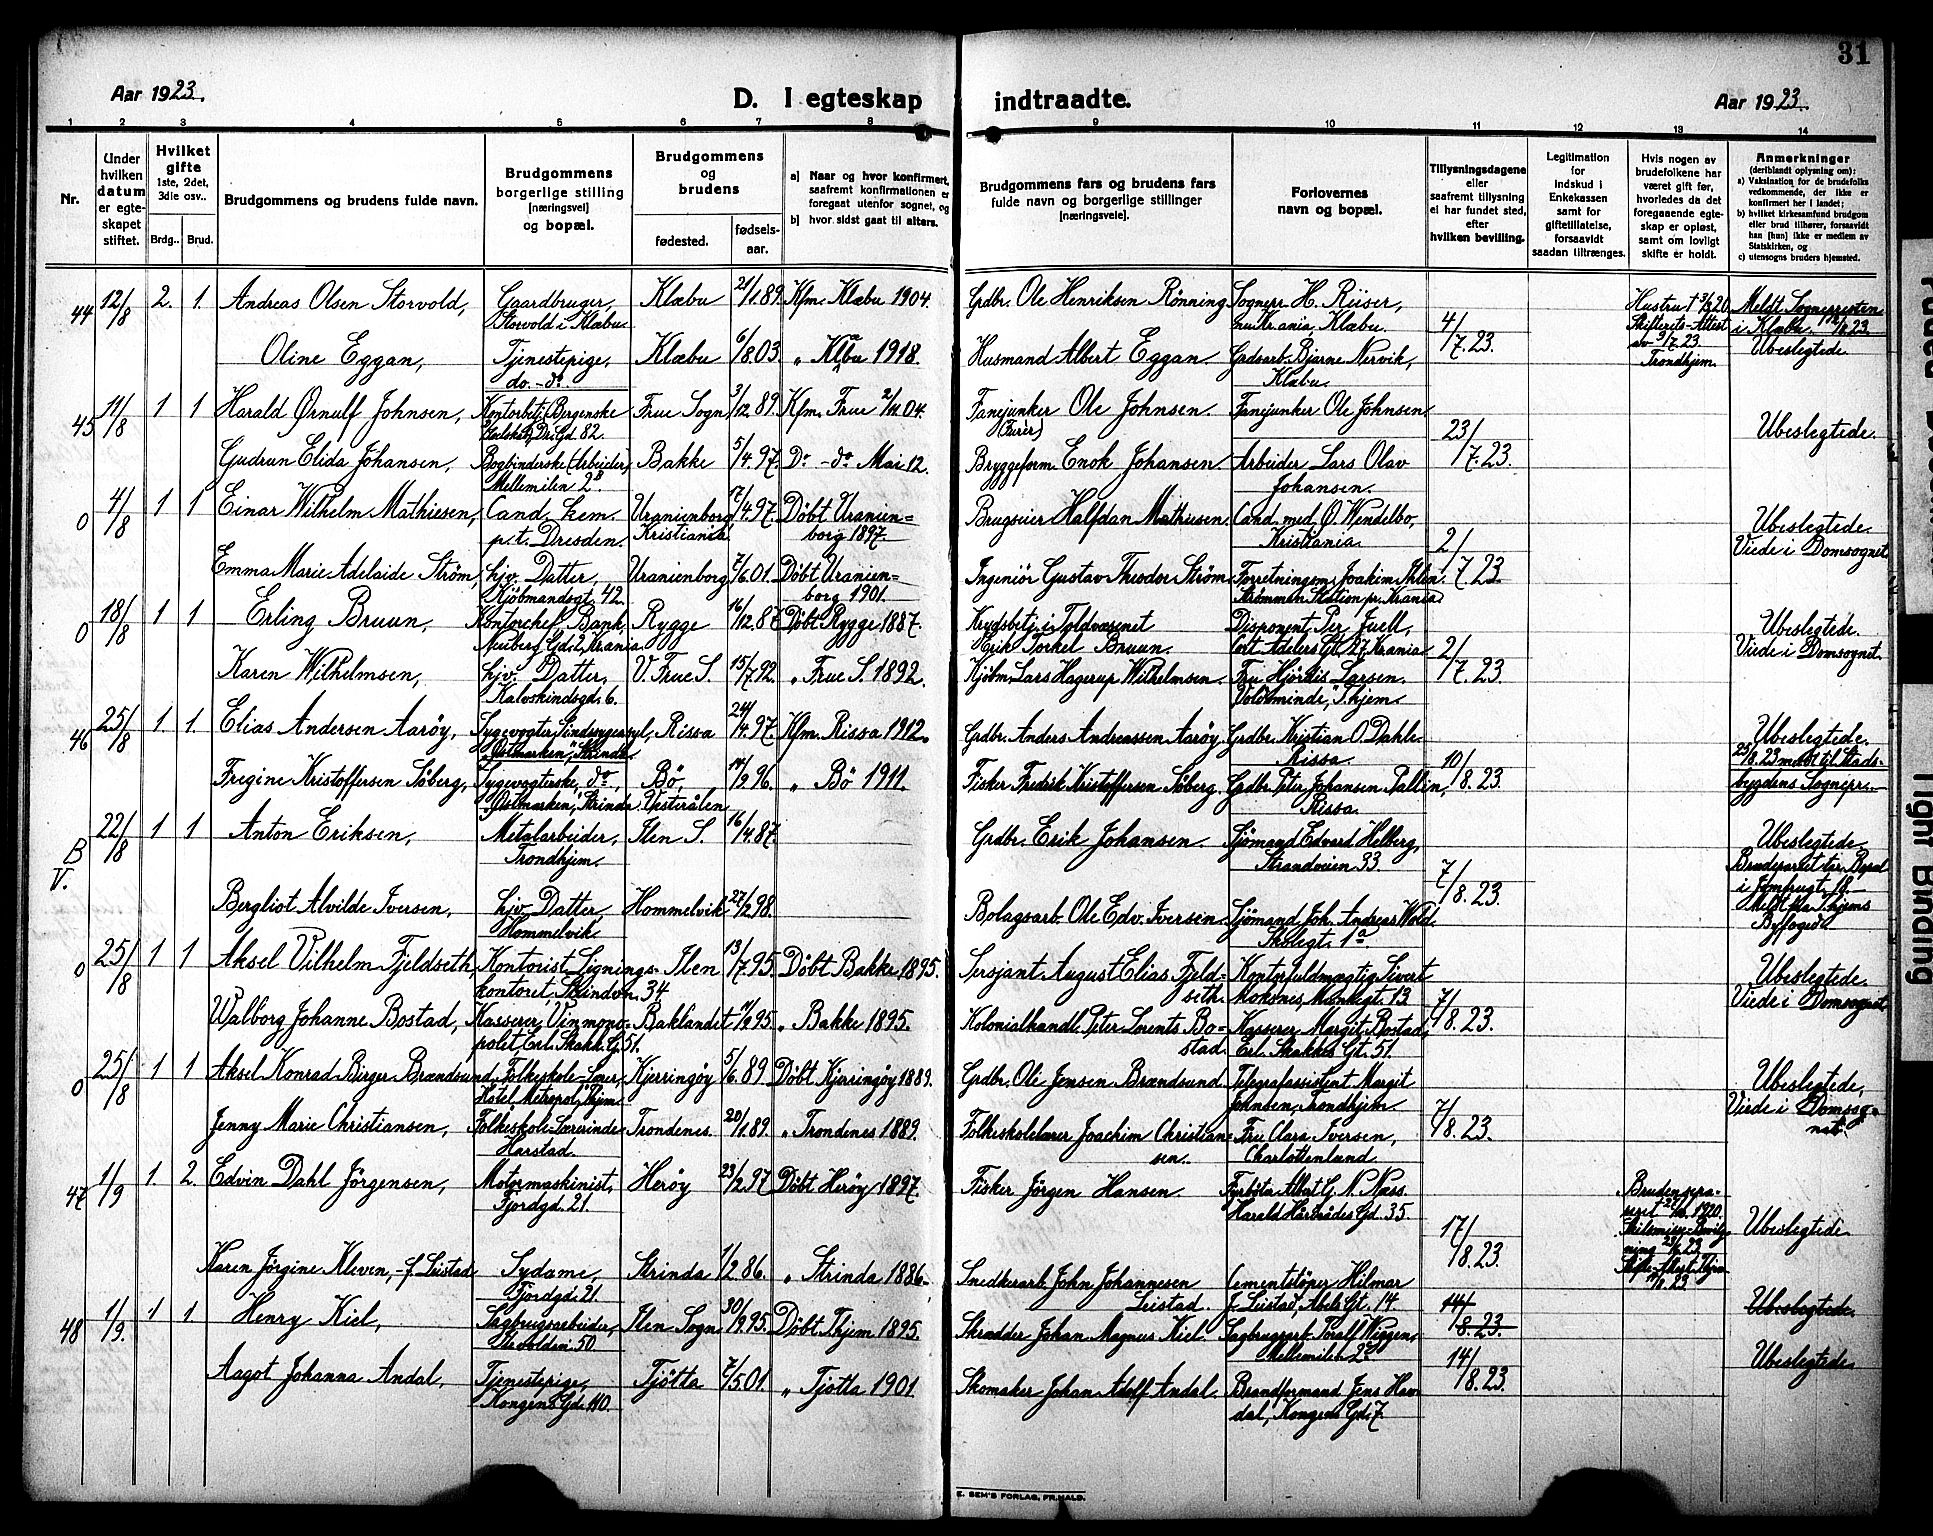 31
Aar 1923.
D. I egteskap indtraadte.
Aar 1923.
1 2 3 4 5 6 7 8 9 10 11 12 13 14
Nr.
Under hvilken datum er egte-skapet stiftet.
Hvilket gifte 1ste, 2det, 3die osv..
Brdg.. Brud.
Brudgommens og brudens fulde navn.
Brudgommens borgerlige stilling [næringsvei] og bopæl.
Brudgommens og brudens
fødested.
fødsels-aar.
a) Naar og hvor konfirmert, saafremt konfirmationen er foregaat utenfor sognet, og
b) hvor sidst gaat til alters.
Brudgommens fars og brudens fars fulde navn og borgerlige stillinger [næringsveie].
Forlovernes navn og bopæl.
Tillysningsdagene eller saafremt tillysning ei har fundet sted, efter hvilken bevilling.
Legitimation for Indskud i Enkekassen samt for giftetillatelse, forsaavidt saadan tiltrænges.
Hvis nogen av brudefolkene har været gift før, hvorledes da det foregaaende egte-skap er opløst, samt om lovligt skifte er holdt.
Anmerkninger (deriblandt oplysning om):
a) Vaksination for de brudefolks vedkommende, der ikke er konfirmert her i landet;
b) hvilket kirkesamfund brudgom eller brud tilhører, forsaavidt han [hun] ikke er medlem av Statskirken, og
c) utensogns bruders hjemsted.
44 12/8 2. 1. Andreas Olsen Storvold, Gaardbruger, Storvold i Klæbu Klæbu 21/1.89. Kfm. Klæbu 1904. Grdbr. Ole Henriksen Rönning Sognepr H. Riiser, nu Kr.ania, Klæbu. 4/7.23. Hustru † 3/3 20 Skifterets-Attest av 3/7.23 Trondhjem. Meldt Sognepresten i Klæbu. 12/8.23. Ubeslegtede
Oline Eggan, Tjenestepige, do. - do Klæbu 6/8.03. " Klæbu 1918. Husmand Albert Eggan Gadearb. Bjarne Nervik, Klæbu.
45 11/8 1 1 Harald Ørnulf Johnsen, Kontorbetj. Bergenske Drs. Gd 82. Frue Sogn 3/12.89. Kfm. Frue 2/10 04. Fanejunker Ole Johnsen. (Furer) Fanejunker Ole Johnsen. 23/7.23. Ubeslegtede.
Gudrun Elida Johansen, Bogbinderske (Arbeider), Mellemilen 2B Bakke 5/4.97. Do - do Mai 12. Bryggeform. Enok Johansen Arbeider Lars Olav Johansen.
O 4/8 1 1 Einar Wilhelm Mathiesen, Cand. kem. p.t. Dresden. Uranienborg Kristiania 17/4.97. Döbt Uranien=borg 1897. Brugseier Halfdan Mathiesen. Cand. med. Ø. Wendelbo, Kristiania. 2/7.23 Ubeslegtede. Viede i Domsognet
Emma Marie Adelaide Ström, hjv. Datter, Kjöbmandsgt. 42. Uranienborg 7/6.01. Döbt Uranien=borg 1901. Ingeniör Gustav Theodor Ström. Forretningsm. Joakim Ihlen. Strömmen Station pr. Kr.ania
O 18/8 1 1 Erling Bruun, Kontorchef Bank, Neuberg Gd. 2, Kr.ania Rygge 16/12.87 Döbt Rygge 1887. Krydsbetj. i Toldvæsenet Erik Torkel Bruun. Disponent Per Juell, Cort Adelers Gt. 27 Kr.ania 2/7.23. Ubeslegtede. Viede i Domsognet.
Karen Wilhelmsen, hjv. Datter, Kalvskindsgd. 6. V. Frue S. 15/7.92. " Frue S. 1892. Kjöbm. Lars Hagerup Wilhelmsen. Fru Hjördis Larsen. "Voldsminde", T.hjem.
46 25/8 1 1. Elias Andersen Aaröy, Sygevogter, Sindssygeasyl, "Östmarken", Strinda Rissa 24/4.97. Kfm. Rissa 1912. Grdbr. Anders Andreassen Aaröy. Grdbr. Kristian O. Dahle. Rissa. 10/8.23. Ubeslegtede. 25/8.23 meldt til Stads-bygdens Sognepr.
Fregine Kristoffersen Söberg, Sygevogterske, do, "Östmarken", Strinda Bö, Vesterålen 14/9.96. " Bö 1911. Fisker Fredrik Kristoffersen Söberg. Grdbr. Peter Johansen Pallin, Rissa.
B V. 22/8 1 1 Anton Eriksen, Metalarbeider, Trondhjem. Ilen S. 16/4.87. Grdbr. Erik Johansen. Sjömand Edvard Helberg, Strandveien 33. 7/8.23. Ubeslegtede. Brudeparret i Jomfrugt. 18. Meldt T.hjems Byfoged
Bergliot Alvilde Iversen, hjv. Datter, Hommelvik Hommelvik 27/2.98. Bolagsarb. Ole Edv. Iversen. Sjömand Joh. Andreas Wold. Skolegt. 1a
O 25/8 1 1 Aksel Vilhelm Fjeldseth, Kontorist Lignings-kontoret, Strindvn. 34 Ilen 13/7.95. Döbt Bakke 1895. Sersjant August Elias Fjeld-seth. Kontorfuldmægtig Sivert Moksnes, Munkegt. 13. 7/8.23. Ubeslegtede. Viede i Domsognet
Walborg Johanne Bostad, Kasserer, Vinmono-polet, Erl. Skakk. G. 51. Baklandet 14/9.95. " Bakke 1895. Kolonialhandl. Peter Lorents Bo=stad. Kasserer Margit Bostad, Erl. Skakkes Gt. 51.
O 25/8 1 1 Aksel Konrad Birger Brændsund, Folkeskole-Lærer, Hotel Metropol, T.hjem. Kjerringöy 5/6.89 Döbt Kjerringöy 1889. Grdbr. Ole Jensen Brændsund. Telegrafassistent Margit Johnsen, Trondhjem. 7/8.23. Ubeslegtede, Viede i Domsog=net.
Jenny Marie Christiansen, Folkeskole-Lærerinde Harstad. Trondenes. 20/1.89. " Trondenes 1889. Folkeskolelærer Joachim Christian=sen.. Fru Clara Iversen, Charlottenlund.
47 1/9 1. 2. Edvin Dahl Jörgensen, Motormaskinist, Fjordgd. 21. Heröy 23/2.97 Döbt Heröy 1897. Fisker Jörgen Hansen. Fyrböter Albert G. N. Næss. Harald Hårdrådes Gd. 35. 17/8.23. Brudensepa-reret 1920. Skilsmisse-Bevilg-ning 23 Ubeslegtede
Karen Jörgine Kleven, - f. Leistad Sydame, Fjordgd. 21. Strinda 1/2.86. " Strinda 1886. Snedkerarb. John Johannesen Leistad. Cementstöper Hilmar J. Leistad, Abels Gt. 14.
48 1/9. 1 1. Henry Kiel, Sagbrugsarbeider, 50 Ilen Sogn 30/9.95. Döbt T.hjem 1895. Skrædder Johan Magnus Kiel Sagbrugsarb. Toralf Wiggen, Mellemilen 14/8.23. Ubeslegtede.
Aagot Johanna Andal, Tjenestepige, Kongens Gd. 110. Tjötta 7/5.01. " Tjötta 1901. Skomaker Johan Adolf Andal. Brandformand Jens Hav-dal, Kongens Gd. 7. 14/8.23. Ubeslegtede
E. SEM'S FORLAG, FR.HALD.
Tight Binding